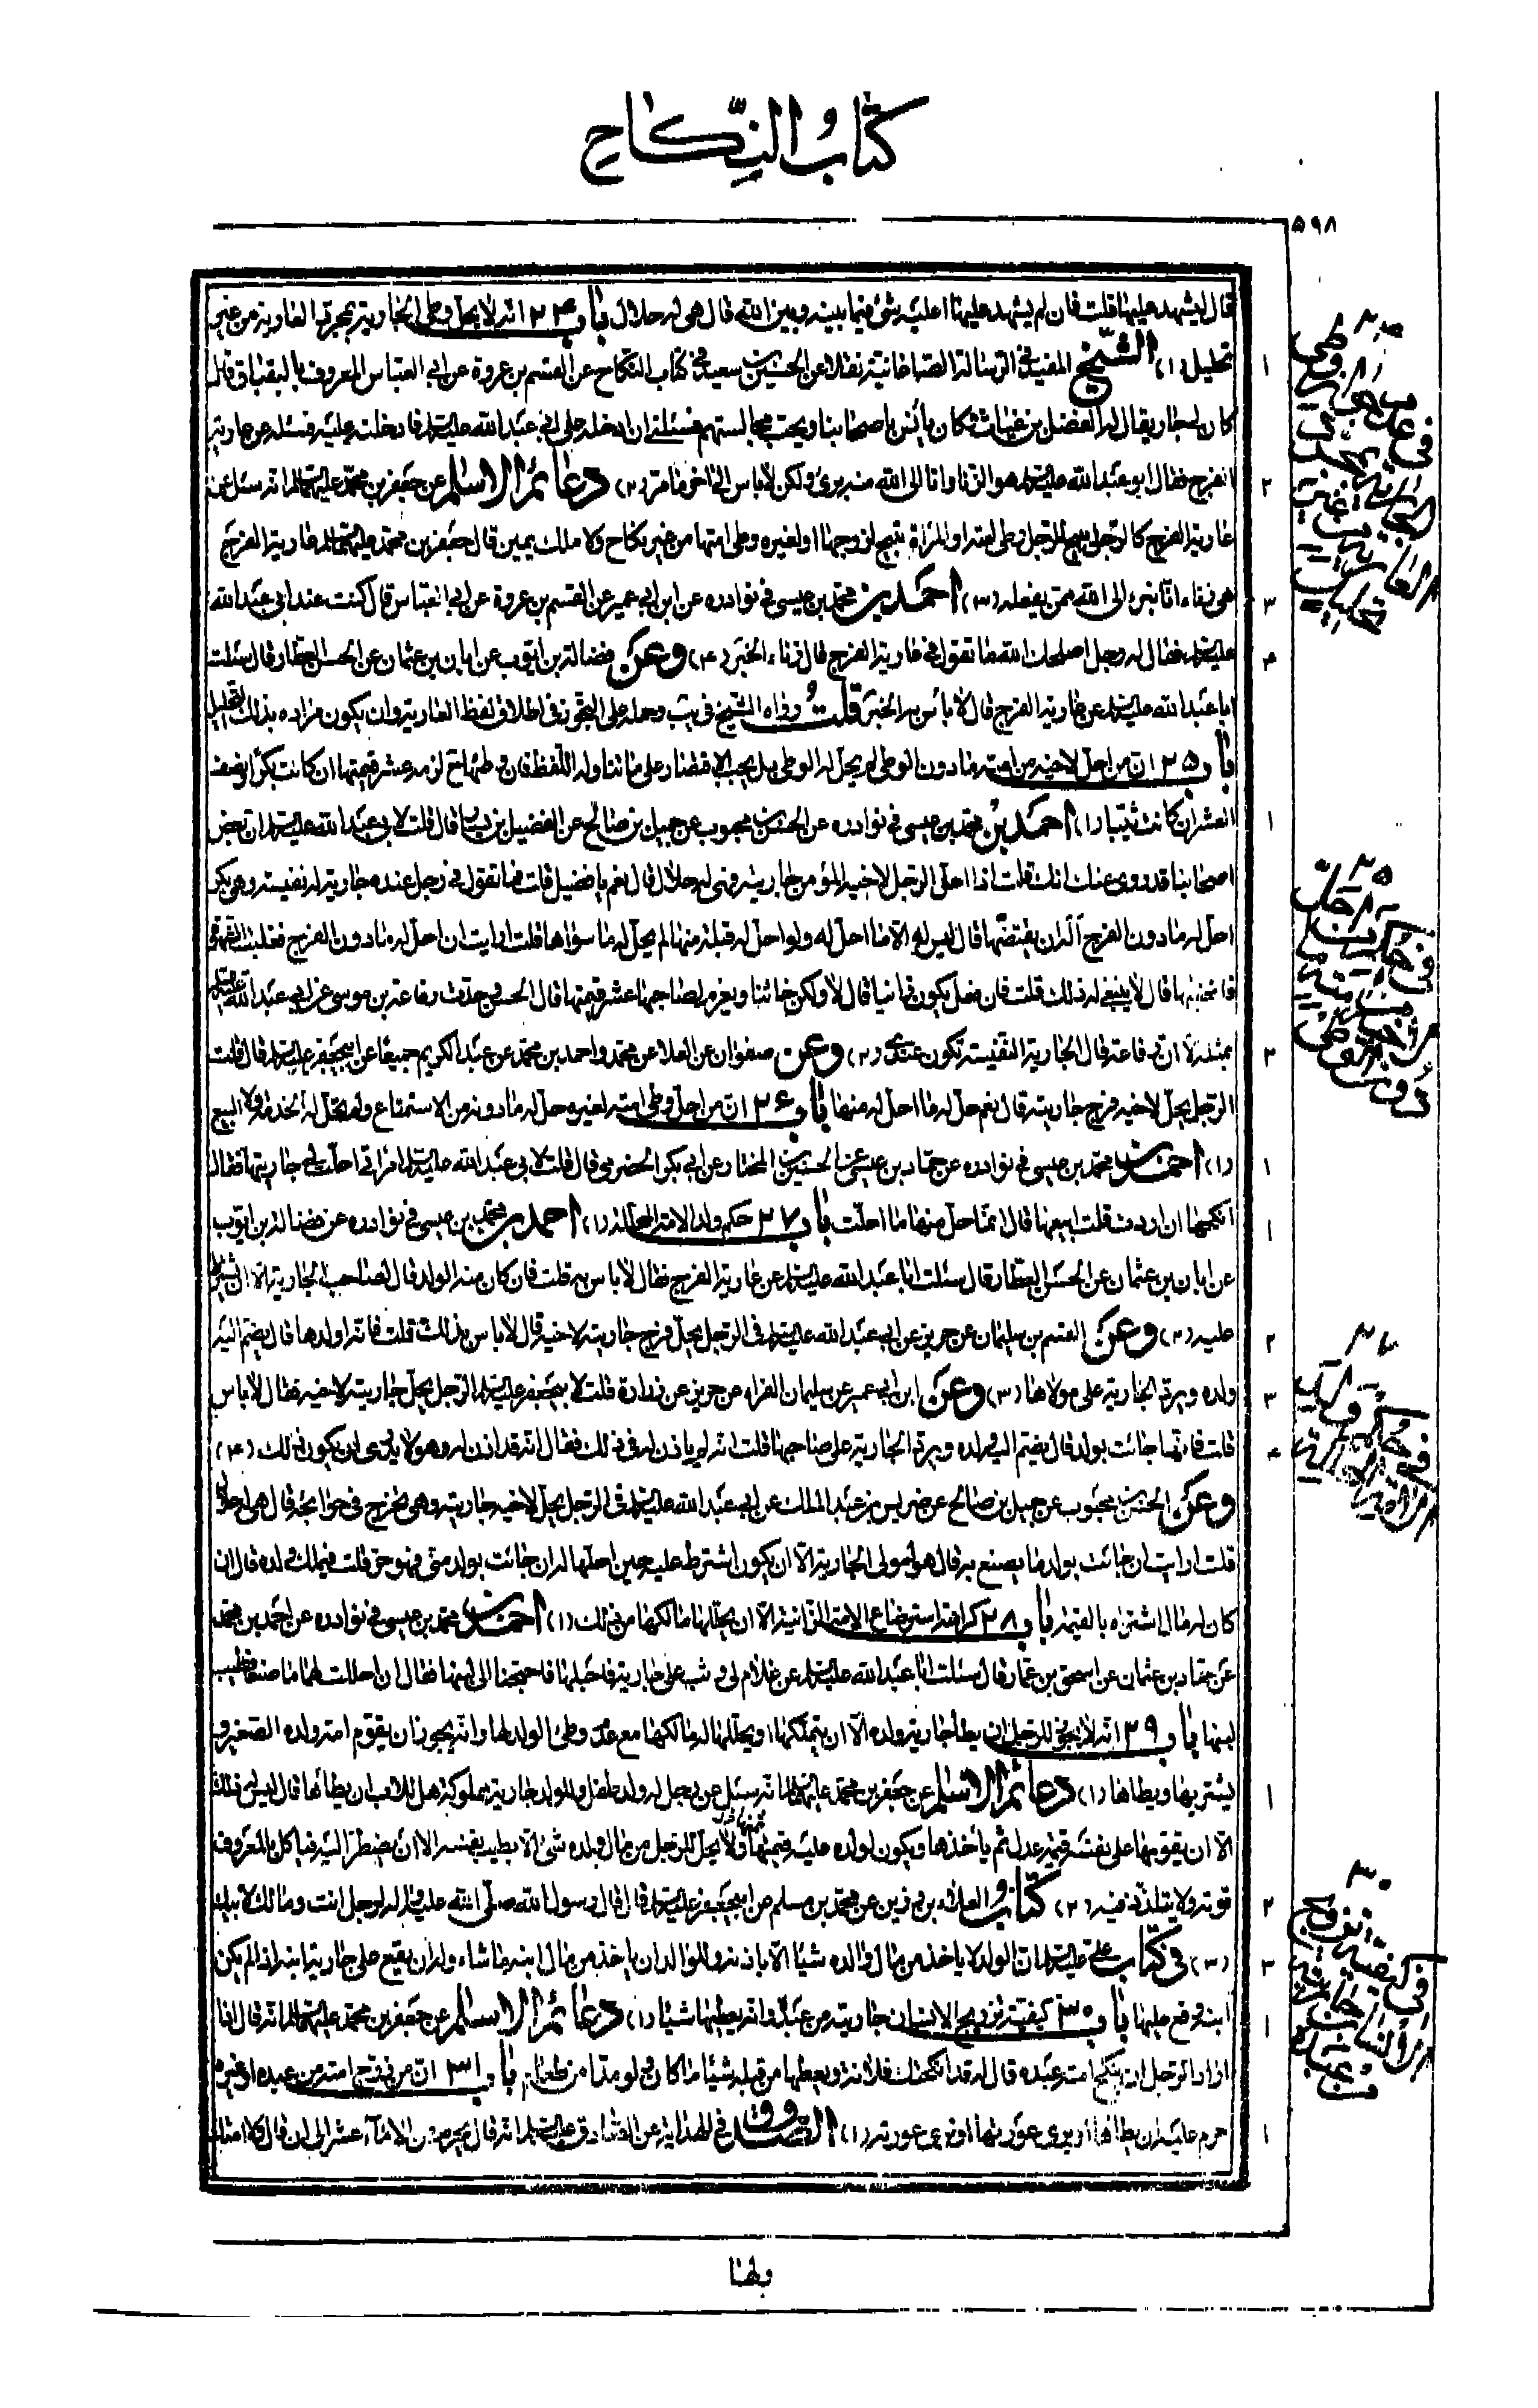 كتاب النكاح
٥٩٨
قال ليشهد عليها قلت فان لم يشهد عليها اعليه شئ فيما بينه وبين الله قال هى له حلال باب ٢٤ انه لا يحل وطى الجارية بمجرد العارية من غير
تحليل (١) الشيخ المفيد فى الرسالة الصاغانية نقلا عن الحسين بن سعيد فى كتاب النكاح عن القسم بن عروة عن ابى العباس المعروف بالبقباق قال
كان لى جار يقال له الفضل بن غياث فكان يأنس باصحابنا ويحب مجالستهم فسئلنى ان ادخله على ابى عبد الله عليه السلم فادخلته عليه فسئله عن عارية
الفرج فقال ابو عبد الله عليه السلم هو الزنا وانا الى الله منه برئ ولكن لا باس الى اخر ما مر (٢) دعائم الاسلام عن جعفر بن محمد عليهما السلم انه سئل عن
عارية الفرج كالرجل يبيح للرجل وطى امته او المراة تبيح لزوجها او لغيره وطى امتها من غير نكاح ولا ملك يمين قال جعفر بن محمد عليهما السلم عارية الفرج
هى زناء انا نبرء الى الله ممن يفعله (٣) احمد بن محمد بن عيسى فى نوادره عن ابن ابى عمير عن القسم بن عروة عن ابى العباس قال كنت عند ابى عبد الله
عليه السلم فقال له رجل اصلحك الله ما تقول فى عارية الفرج قال زناء الخبر (٤) وعن فضالة بن ايوب عن ابان بن عثمان عن الحسن العطار قال سئلت
ابا عبد الله عليه السلم عن عارية الفرج قال لا بأس به الخبر قلت ورواه الشيخ فى يب وحمله على التجوز فى اطلاق لفظ العارية وان يكون مراده بذلك التحليل
باب ٢٥ ان من احل لاخيه من امته ما دون الوطى لم يحل له الوطى بل يجب الاقتصار على ما تناوله اللفظ فان وطئها ح لزمه عشر قيمتها ان كانت بكرا ونصف
العشر ان كانت ثيبا (١) احمد بن محمد بن عيسى فى نوادره عن الحسن بن محبوب عن جميل بن صالح عن الفضيل بن يسار قال قلت لابى عبد الله عليه السلم ان بعض
اصحابنا قد روى عنك انك قلت اذا احل الرجل لاخيه المؤمن جاريته فهى له حلال قال نعم يا فضيل قلت فما تقول فى رجل عنده جارية له نفيسة وهى بكر
احل له ما دون الفرج أله ان يقتضها قال ليس له الا ما احل له ولو احل له قبلة منها لم يحل له ما سواها قلت ارايت ان احل له ما دون الفرج فغلبته الشهوة
فاقتضها قال لا ينبغى له ذلك قلت فان فعل يكون زانيا قال لا ولكن خائنا ويغرم لصاحبها عشر قيمتها قال الحسن وحدث رفاعة بن موسى عن ابى عبد الله عليه السلم
بمثله الا ان رفاعة قال الجارية النفيسة تكون عندى (٢) وعن صفوان عن العلا عن محمد واحمد بن محمد عن عبد الكريم جميعا عن ابى جعفر عليه السلم قال قلت
الرجل يحل لاخيه فرج جاريته قال نعم حل له ما احل له منها باب ٢٦ ان من احل وطى امته لغيره حل له ما دونه من الاستمتاع ولم يحل له الخدمة ولا البيع
(١) احمد بن محمد بن عيسى فى نوادره عن حماد بن عيسى عن الحسين بن المختار عن ابى بكر الحضرمى قال قلت لابى عبد الله عليه السلم امراتى احلت لى جاريتها فقال
انكحها ان اردت قلت ابيعها قال انما حل منها ما احلت باب ٢٧ حكم ولد الامة المحللة (١) احمد بن محمد بن عيسى فى نوادره عن فضالة بن ايوب
عن ابان بن عثمان عن الحسن العطار قال سئلت ابا عبد الله عليه السلم عن عارية الفرج فقال لا باس به قلت فان كان منه الولد قال لصاحب الجارية الا ان يشترط
عليه (٢) وعن القسم بن سليمان عن حريز عن ابى عبد الله عليه السلم فى الرجل يحل فرج جاريته لاخيه قال لا باس بذلك قلت فانه اولدها قال يضم اليه
ولده ويرد الجارية على مولاها (٣) وعن ابن ابى عمير عن سليمان الفراء عن حريز عن زرارة قلت لابى جعفر عليه السلم الرجل يحل جاريته لاخيه فقال لا باس
قلت فانها جائت بولد قال يضم اليه ولده ويرد الجارية على صاحبها قلت انه لم ياذن له فى ذلك فقال انه قد اذن له وهو لا يدرى ان يكون ذلك (٤)
وعن الحسن بن محبوب عن جميل بن صالح عن ضريس بن عبد الملك عن ابى عبد الله عليه السلم فى الرجل يحل لاخيه جاريته وهى تخرج فى حوائجه قال هى له حلال
قلت ارايت ان جائت بولد ما يصنع به قال هو لمولى الجارية الا ان يكون اشترط عليه حين احلها له ان جائت بولد منى فهو حر قلت فيملك ولده قال ان
كان له مال اشتراه بالقيمة باب ٢٨ كراهة استرضاع الامة الزانية الا ان يحللها مالكها من ذلك (١) احمد بن محمد بن عيسى فى نوادره عن احمد بن محمد
عن حماد بن عثمان عن اسحق بن عمار قال سئلت ابا عبد الله عليه السلم عن غلام لى وثب على جارية فاحبلها فاحتجنا الى لبنها فقال ان احللت لهما ما صنعا فطيب
لبنها باب ٢٩ انه لا يجوز للرجل ان يطأ جارية ولده الا ان يتملكها او يحللها له مالكها مع عدم وطئ الولد لها وانه يجوز ان يقوم امة ولده الصغير و
يشتريها ويطاها (١) دعائم الاسلام عن جعفر بن محمد عليهما السلم انه سئل عن رجل له ولد طفل وللولد جارية مملوكة هل للاب ان يطأها قال ليس ذلك
الا ان يقومها على نفسه قيمة عدل ثم يأخذها ويكون لولده عليه قيمتها ولا يحل للرجل من مال ولده شئ الا بطيب نفسه الا ان يضطر اليه فياكل بالمعروف
قوته ولا يتلذذ فيه (٢) كتاب العلاء بن رزين عن محمد بن مسلم عن ابى جعفر عليه السلم قال قال رسول الله صلى الله عليه واله لرجل انت ومالك لابيك
(٣) فى كتاب على عليه السلم ان الولد لا ياخذ من مال والده شيئا الا باذنه وللوالد ان ياخذ من مال ابنه ما شاء وله ان يقع على جارية ابنه اذا لم يكن
ابنه وقع عليها باب ٣٠ كيفية تزويج الانسان جاريته من عبده وانه يعطيها شيئا (١) دعائم الاسلام عن جعفر بن محمد عليهما السلم انه قال اذا
اراد الرجل ان ينكح امته عبده قال له قد انكحتك فلانة ويعطيها من قبله شيئا ما كان ولو مدا من طعام باب ٣١ ان من زوج امته من عبده او غيره
حرم عليه ان يطاها او يرى عورتها او ترى عورته (١) الصدوق فى الهداية عن الصادق عليه السلم انه قال يحرم من الاماء عشر الى ان قال ولا امتك
ولها